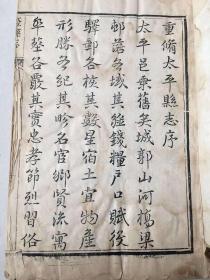 重脩太平縣志序
太平邑乗舊矣城郭山河橋梁
郵落各域其險錢糧戸口賦役
驛郵各核其數星宿土宜物產
形勝各紀其時名宦鄉賢流寓
丘墓各嚴其實忠孝節烈習俗